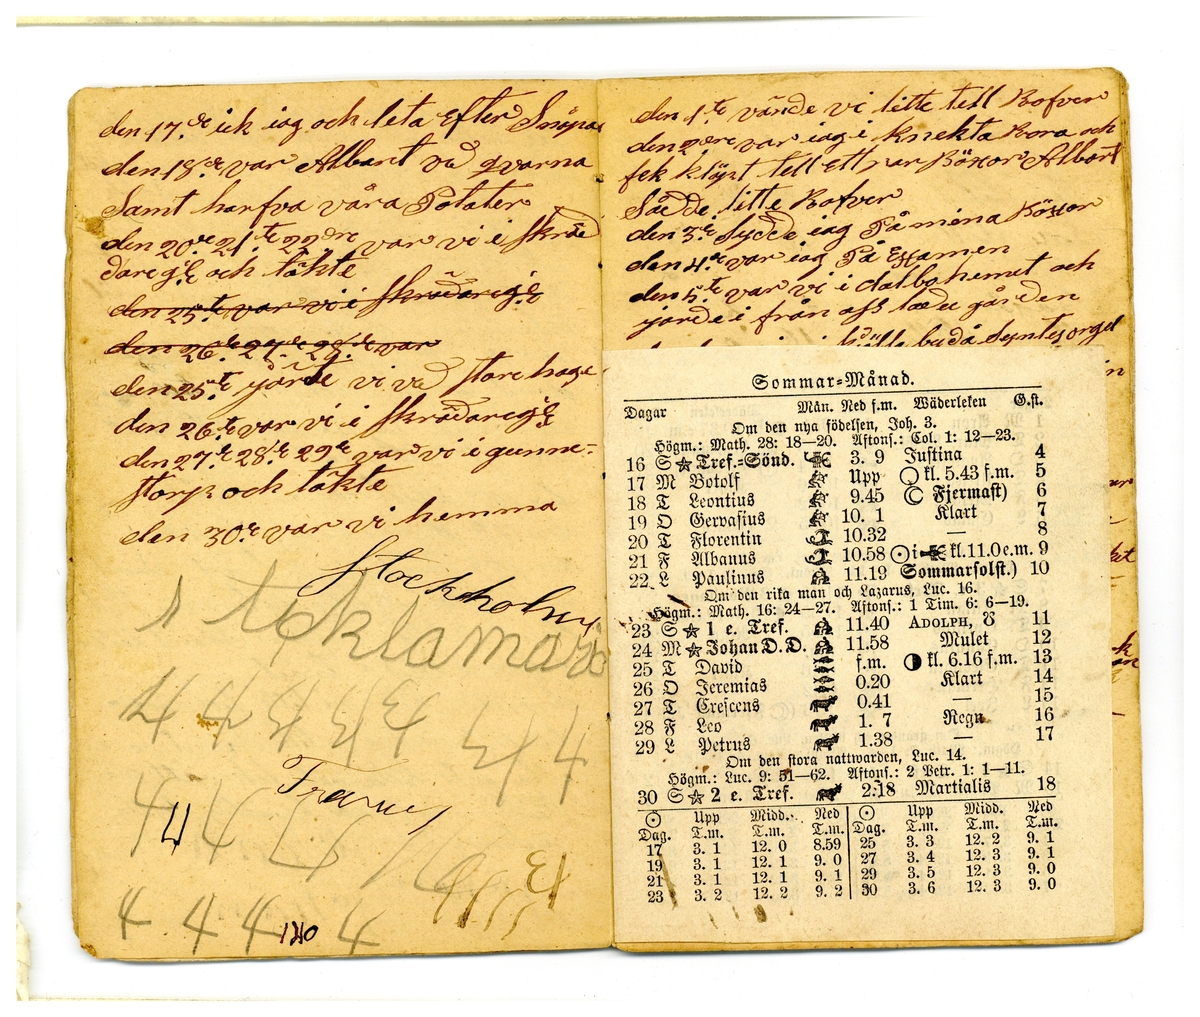 den 17.de ick iag och leta Efter Snöpa
den 18.de var Albart vid qvarna
Samt harfva våra Potater
den 20.de 21.te 22.dre var vi i skräd
daregl och täkte
den 25.te var vi i skrädaregl
den 26.te 27. 28.de var
den 25.te jörde vi vid store haga
den 26.te var vi i skrädaregl
den 27.de 28.de 29.de var vi i gunne-
storp och täkte
den 30.de var vi hemma
Stockholm
4 4 4 4
140
den 1.te vände vi litte till Rofver
den 2dre var iag i Knekta Kora och
fek klöpt tell Ett par Böxor Albart
Sådde litte Rofver
den 3.de Sydde iag På mina Böxor
den 4.de var iag På Examen
den 5.te var vi i dalbo hemet och
jorde i från oss ladu gården
Sommar-Månad.
Dagar Mån. Ned f.m. Wäderleken G.st.
Om den nya födelsen, Joh. 3.
Högm.: Math. 28: 18—20. Aftons.: Col. 1: 12—23.
16 S Tref.-Sönd. 3. 9 Justina 4
17 M Botolf Upp kl. 5.43 f.m. 5
18 T Leontius 9.45 Fjermast) 6
19 O Gervasius 10. 1 Klart 7
20 T Florentin 10.32 — 8
21 F Albanus 10.58 ☉ i kl. 11.0 e.m. 9
22 L Paulinus 11.19 Sommarsolst.) 10
Om den rika man och Lazarus, Luc. 16.
Högm.: Math. 16: 24—27. Aftons.: 1 Tim. 6: 6—19.
23 S 1 e. Tref. 11.40 ADOLPH, ☋ 11
24 M Johan D. D. 11.58 Mulet 12
25 T David f.m. kl. 6.16 f.m. 13
26 O Jeremias 0.20 Klart 14
27 T Crescens 0.41 — 15
28 F Leo 1. 7 Regn 16
29 L Petrus 1.38 — 17
Om den stora nattwarden, Luc. 14.
Högm.: Luc. 9: 51—62. Aftons.: 2 Petr. 1: 1—11.
30 S 2 e. Tref. 2.18 Martialis 18
☉ Upp Midd. Ned ☉ Upp Midd. Ned
Dag. T.m. T.m. T.m. Dag. T.m. T.m. T.m.
17 3. 1 12. 0 8.59 25 3. 3 12. 2 9. 1
19 3. 1 12. 1 9. 0 27 3. 4 12. 3 9. 1
21 3. 1 12. 1 9. 1 29 3. 5 12. 3 9. 0
23 3. 2 12. 2 9. 2 30 3. 6 12. 3 9. 0